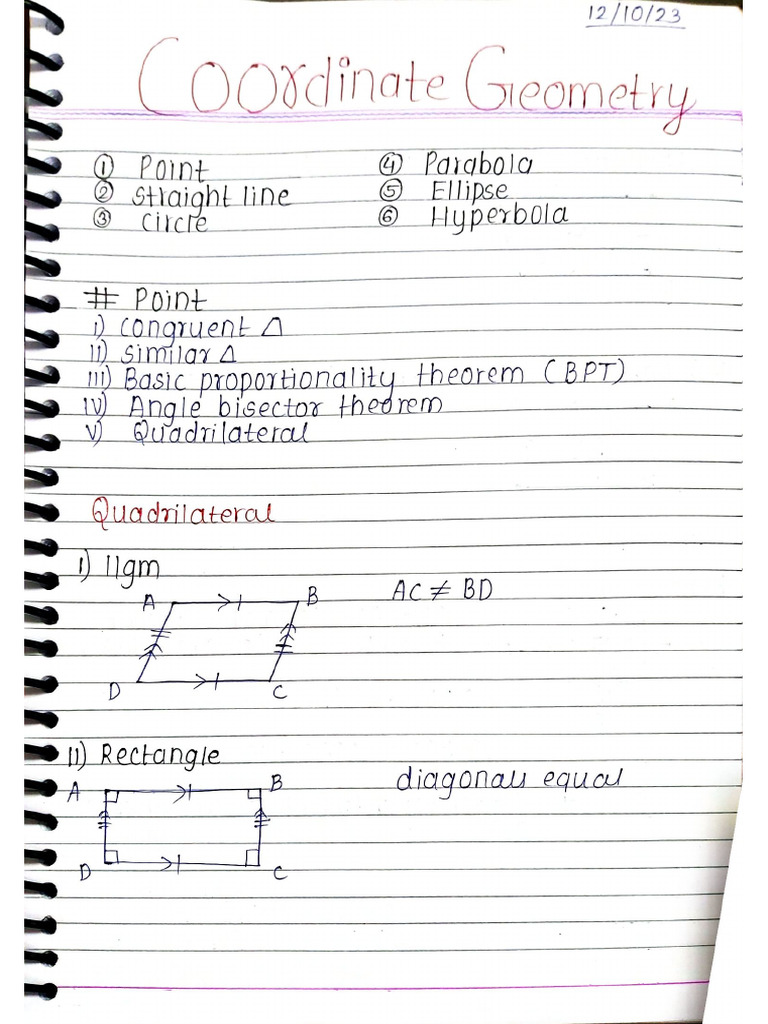 12/10/23
Coordinate Geometry
① Point ④ Parabola
② Straight line ⑤ Ellipse
③ Circle ⑥ Hyperbola
# Point
i) congruent △
ii) similar △
iii) Basic proportionality theorem (BPT)
iv) Angle bisector theorem
v) Quadrilateral
Quadrilateral
I) llgm
A B AC ≠ BD
D C
II) Rectangle
A B diagonals equal
D C